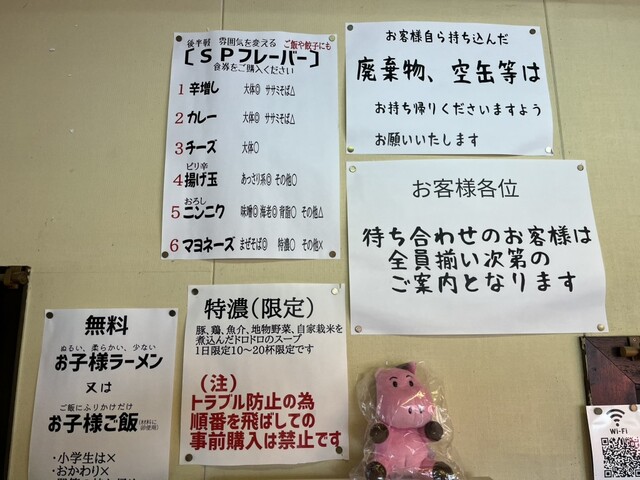 後半戦 雰囲気を変える ご飯や餃子にも
〔ＳＰフレーバー〕
食券をご購入ください
1 辛増し 大体◎ ササミそば△
2 カレー 大体◎ ササミそば△
3 チーズ 大体○
ピリ辛
4 揚げ玉 あっさり系◎ その他○
おろし
5 ニンニク 味噌◎ 海老◎ 背脂○ その他△
6 マヨネーズ まぜそば◎ 特濃○ その他×
お客様自ら持ち込んだ
廃棄物、空缶等は
お持ち帰りくださいますよう
お願いいたします
お客様各位
待ち合わせのお客様は
全員揃い次第の
ご案内となります
無料
ぬるい、柔らかい、少ない
お子様ラーメン
又は
ご飯にふりかけだけ
お子様ご飯
・小学生は×
・おかわり×
特濃(限定)
豚、鶏、魚介、地物野菜、自家栽米を
煮込んだドロドロのスープ
1日限定10～20杯限定です
（注）
トラブル防止の為
順番を飛ばしての
事前購入は禁止です
Wi-Fi